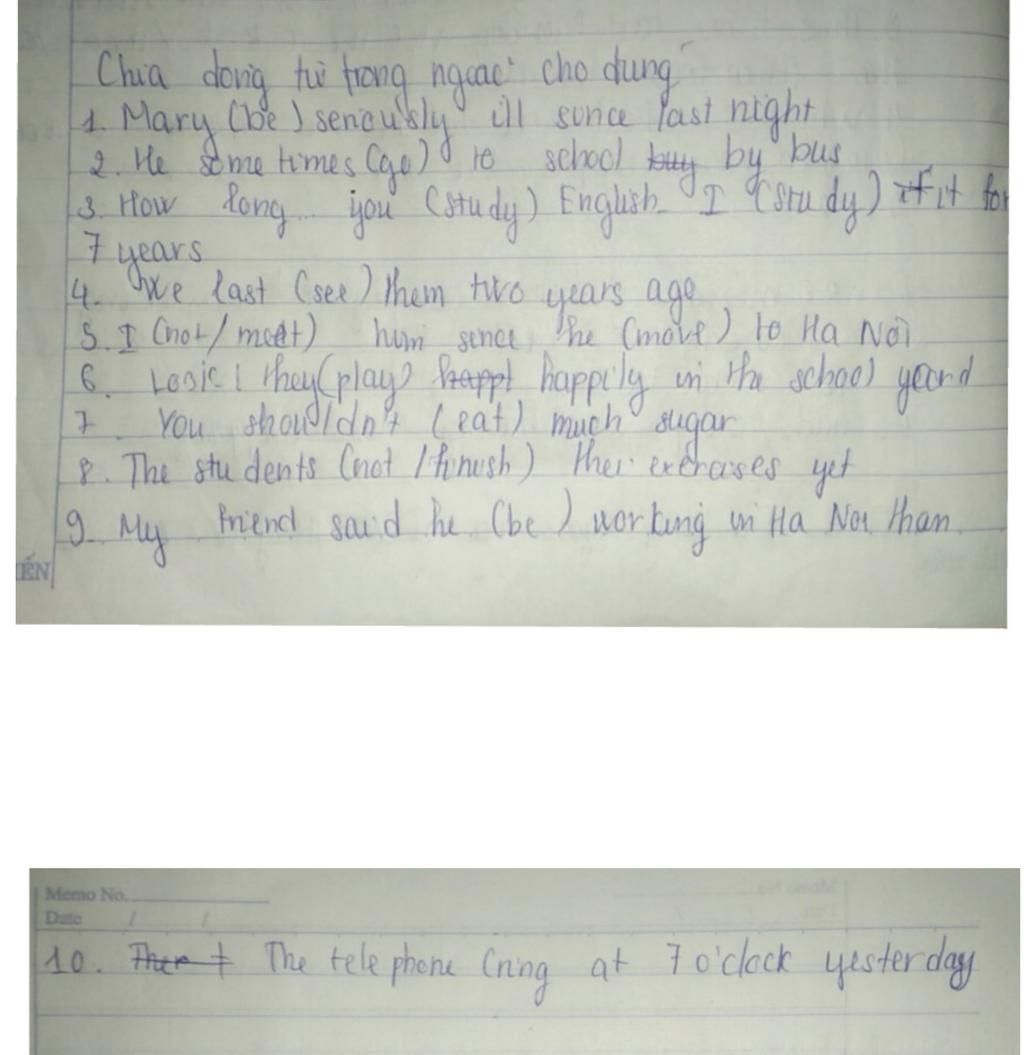 Chia dong từ trong ngoac cho dung
1. Mary (be) seriously ill since last night
2. He some times (go) to school buy by bus
3. How long... you (study) English. I (study) it for
7 years
4. We last (see) them two years ago
5. I (not/meet) him since he (move) to Ha Nôi
6. Look! they(play) happi happily in the school yeard
7. You shouldn't (eat) much sugar
8. The students (not / finish) thei exercises yet
9. My friend said he (be) working in Ha Noi than
ẾN
Memo No.
Date / /
10. The telephone (ring at 7 o'clock yesterday